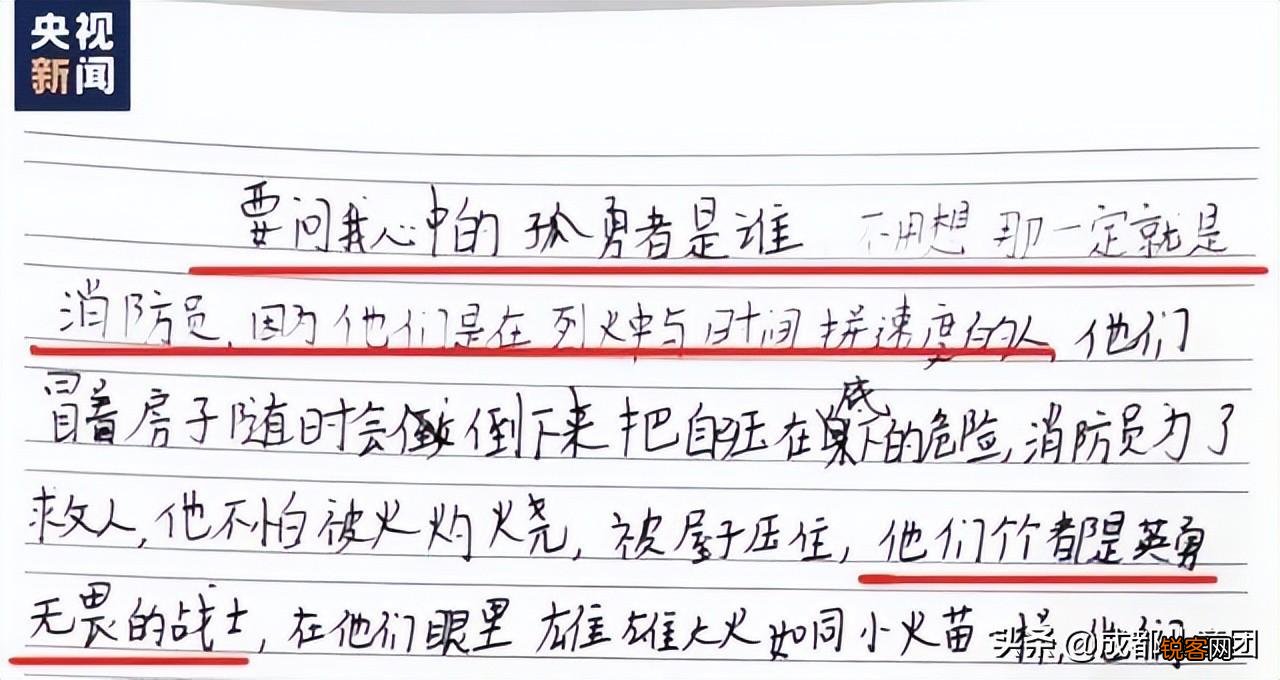 央视
新闻
要问我心中的孤勇者是谁 不用想 那一定就是
消防员,因为他们是在烈火中与时间拼速度的人,他们
冒着房子随时会倒下来把自己压在底下的危险,消防员为了
救人,他不怕被火灼烧,被屋子压住,他们个个都是英勇
无畏的战士,在他们眼里 雄雄大火如同小火苗一样,他们
头条 @成都 团
锐客网